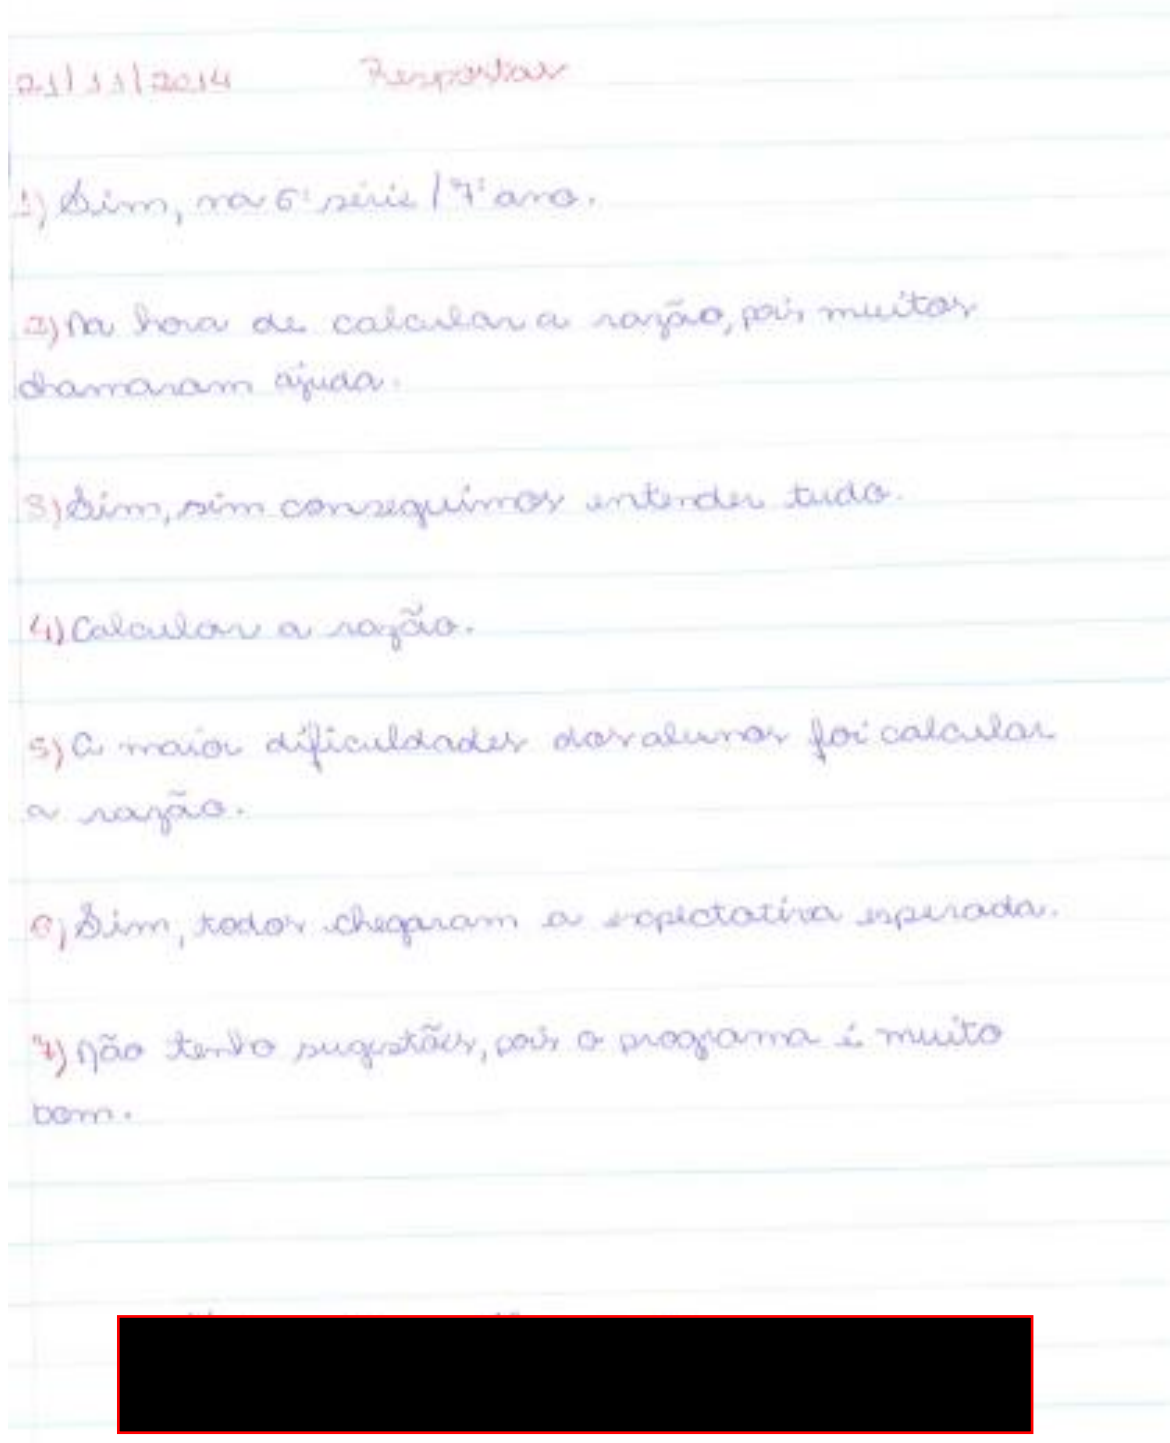 21/11/2014 Respostas
1) Sim, na 6ª série / 7º ano.
2) Na hora de calcular a razão, pois muitos
chamaram ajuda.
3) Sim, sim conseguimos entender tudo.
4) Calcular a razão.
5) A maior dificuldades dos alunos foi calcular
a razão.
6) Sim, todos chegaram a expectativa esperada.
7) Não tenho sugestões, pois o programa é muito
bom.